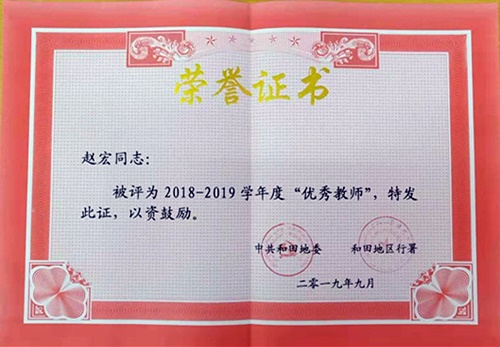 荣誉证书
赵宏同志：
被评为 2018-2019 学年度“优秀教师”，特发
此证，以资鼓励。
中共和田地委 和田地区行署
二零一九年九月